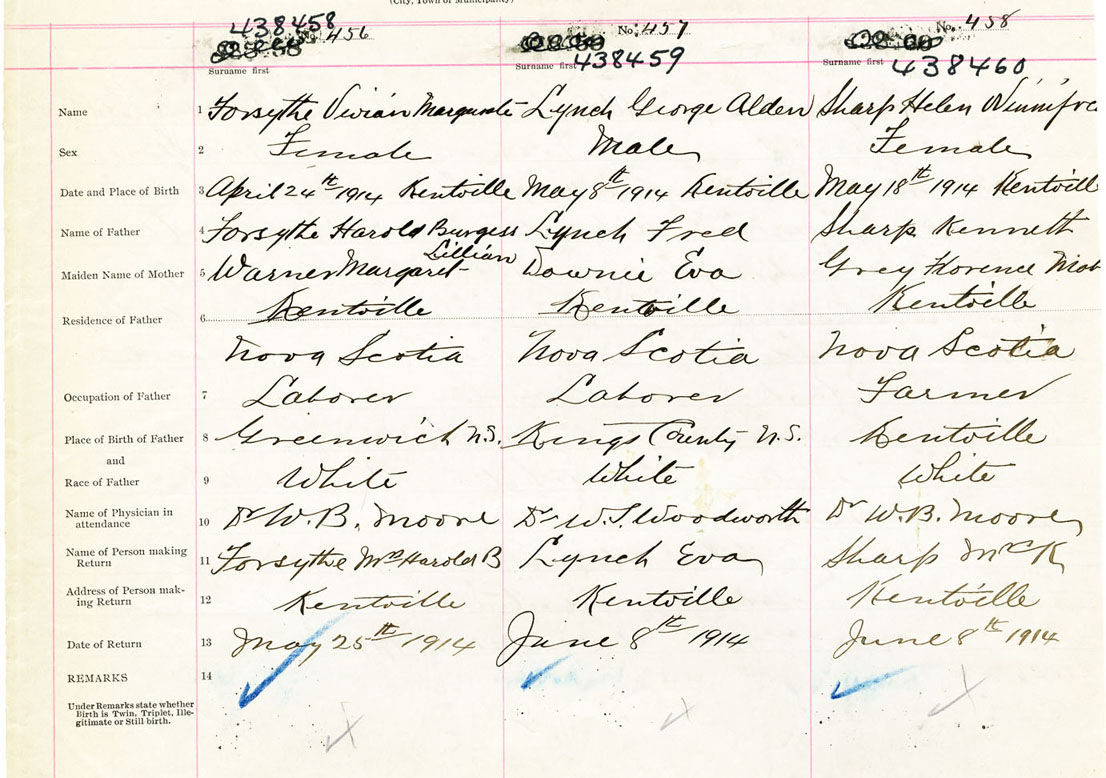 (City, Town or Municipality)
438458 No. 456 No. 457 No. 458
Surname first Surname first 438459 Surname first 438460
Name 1 Forsythe Vivian Marguerite Lynch George Alden Sharp Helen Winnifre
Sex 2 Female Male Female
Date and Place of Birth 3 April 24th 1914 Kentville May 8th 1914 Kentville May 18th 1914 Kentvill
Name of Father 4 Forsythe Harold Burgess Lynch Fred Sharp Kenneth
Lillian
Maiden Name of Mother 5 Warner Margaret Downie Eva Grey Florence
Residence of Father 6 Kentville Kentville Kentville
Nova Scotia Nova Scotia Nova Scotia
Occupation of Father 7 Laborer Laborer Farmer
Place of Birth of Father 8 Greenwich N.S. Kings County N.S. Kentville
and
Race of Father 9 White White White
Name of Physician in
attendance 10 Dr W. B. Moore Dr W. S. Woodworth Dr W. B. Moore
Name of Person making
Return 11 Forsythe Mrs Harold B Lynch Eva Sharp Mrs K
Address of Person mak-
ing Return 12 Kentville Kentville Kentville
Date of Return 13 May 25th 1914 June 8th 1914 June 8th 1914
REMARKS 14
Under Remarks state whether
Birth is Twin, Triplet, Ille-
gitimate or Still birth.